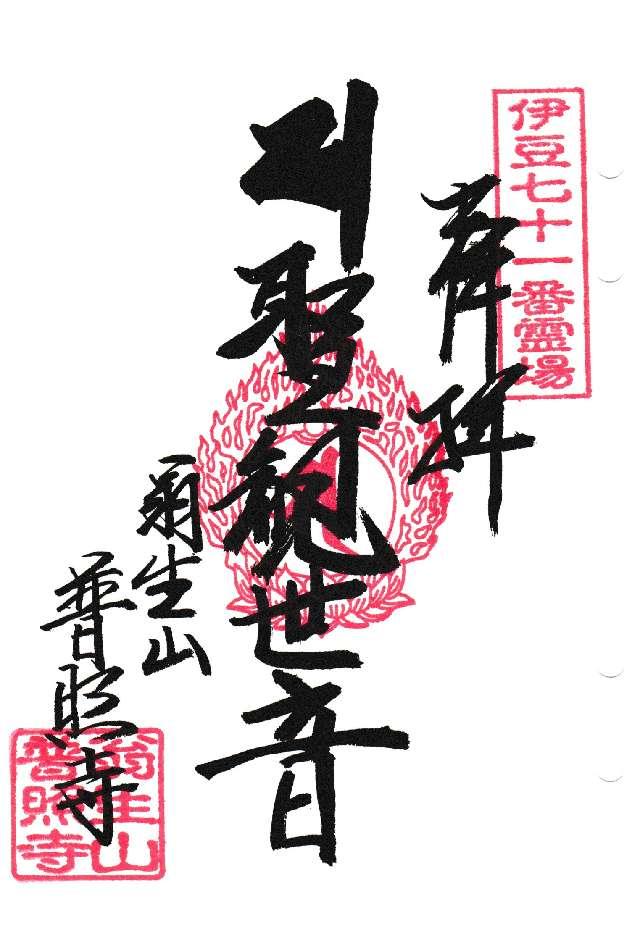 伊豆七十一番霊場
奉拝
聖観世音
翁生山
普照寺
翁生山
普照寺